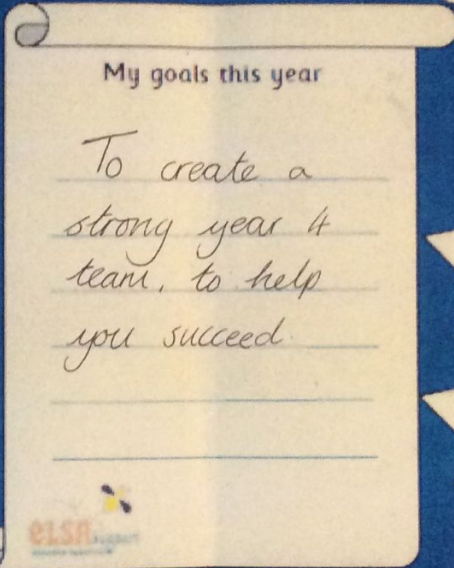 My goals this year
To create a
strong year 4
team, to help
you succeed.
eLSA support